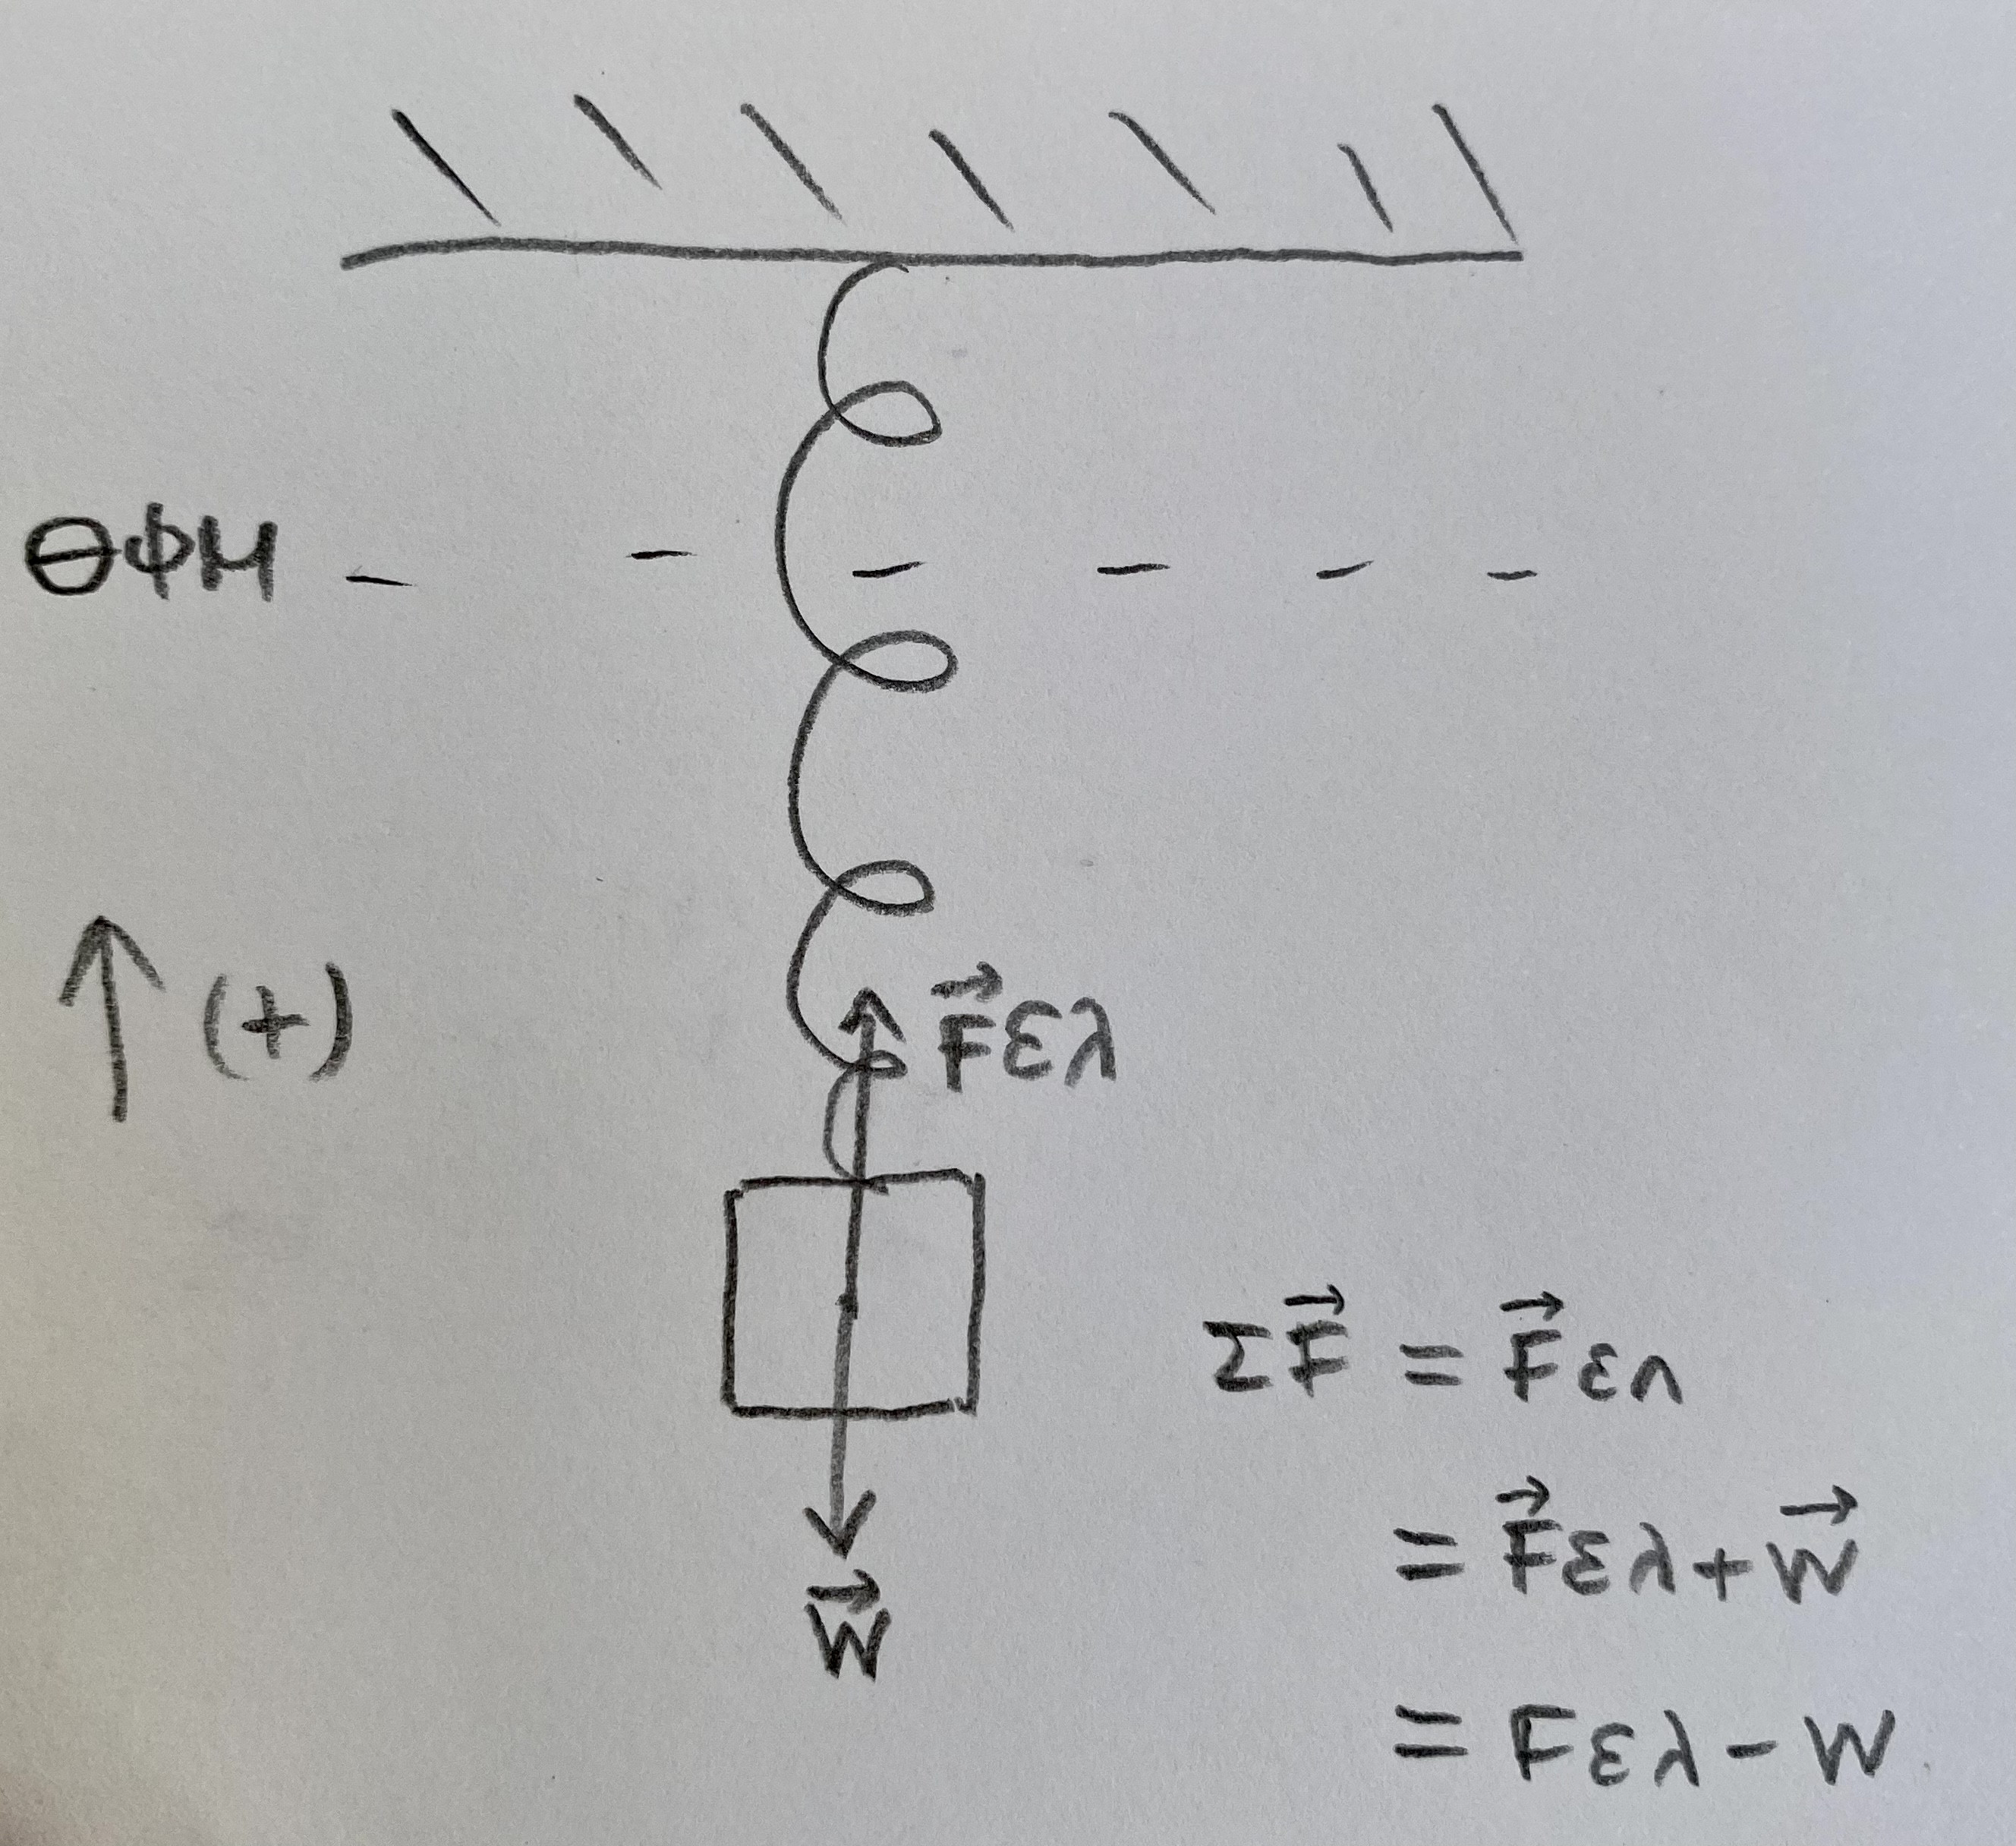 ΘΦΜ
(+)
F⃗ελ
W⃗
ΣF⃗ = F⃗επ
= F⃗ελ + W⃗
= Fελ - W